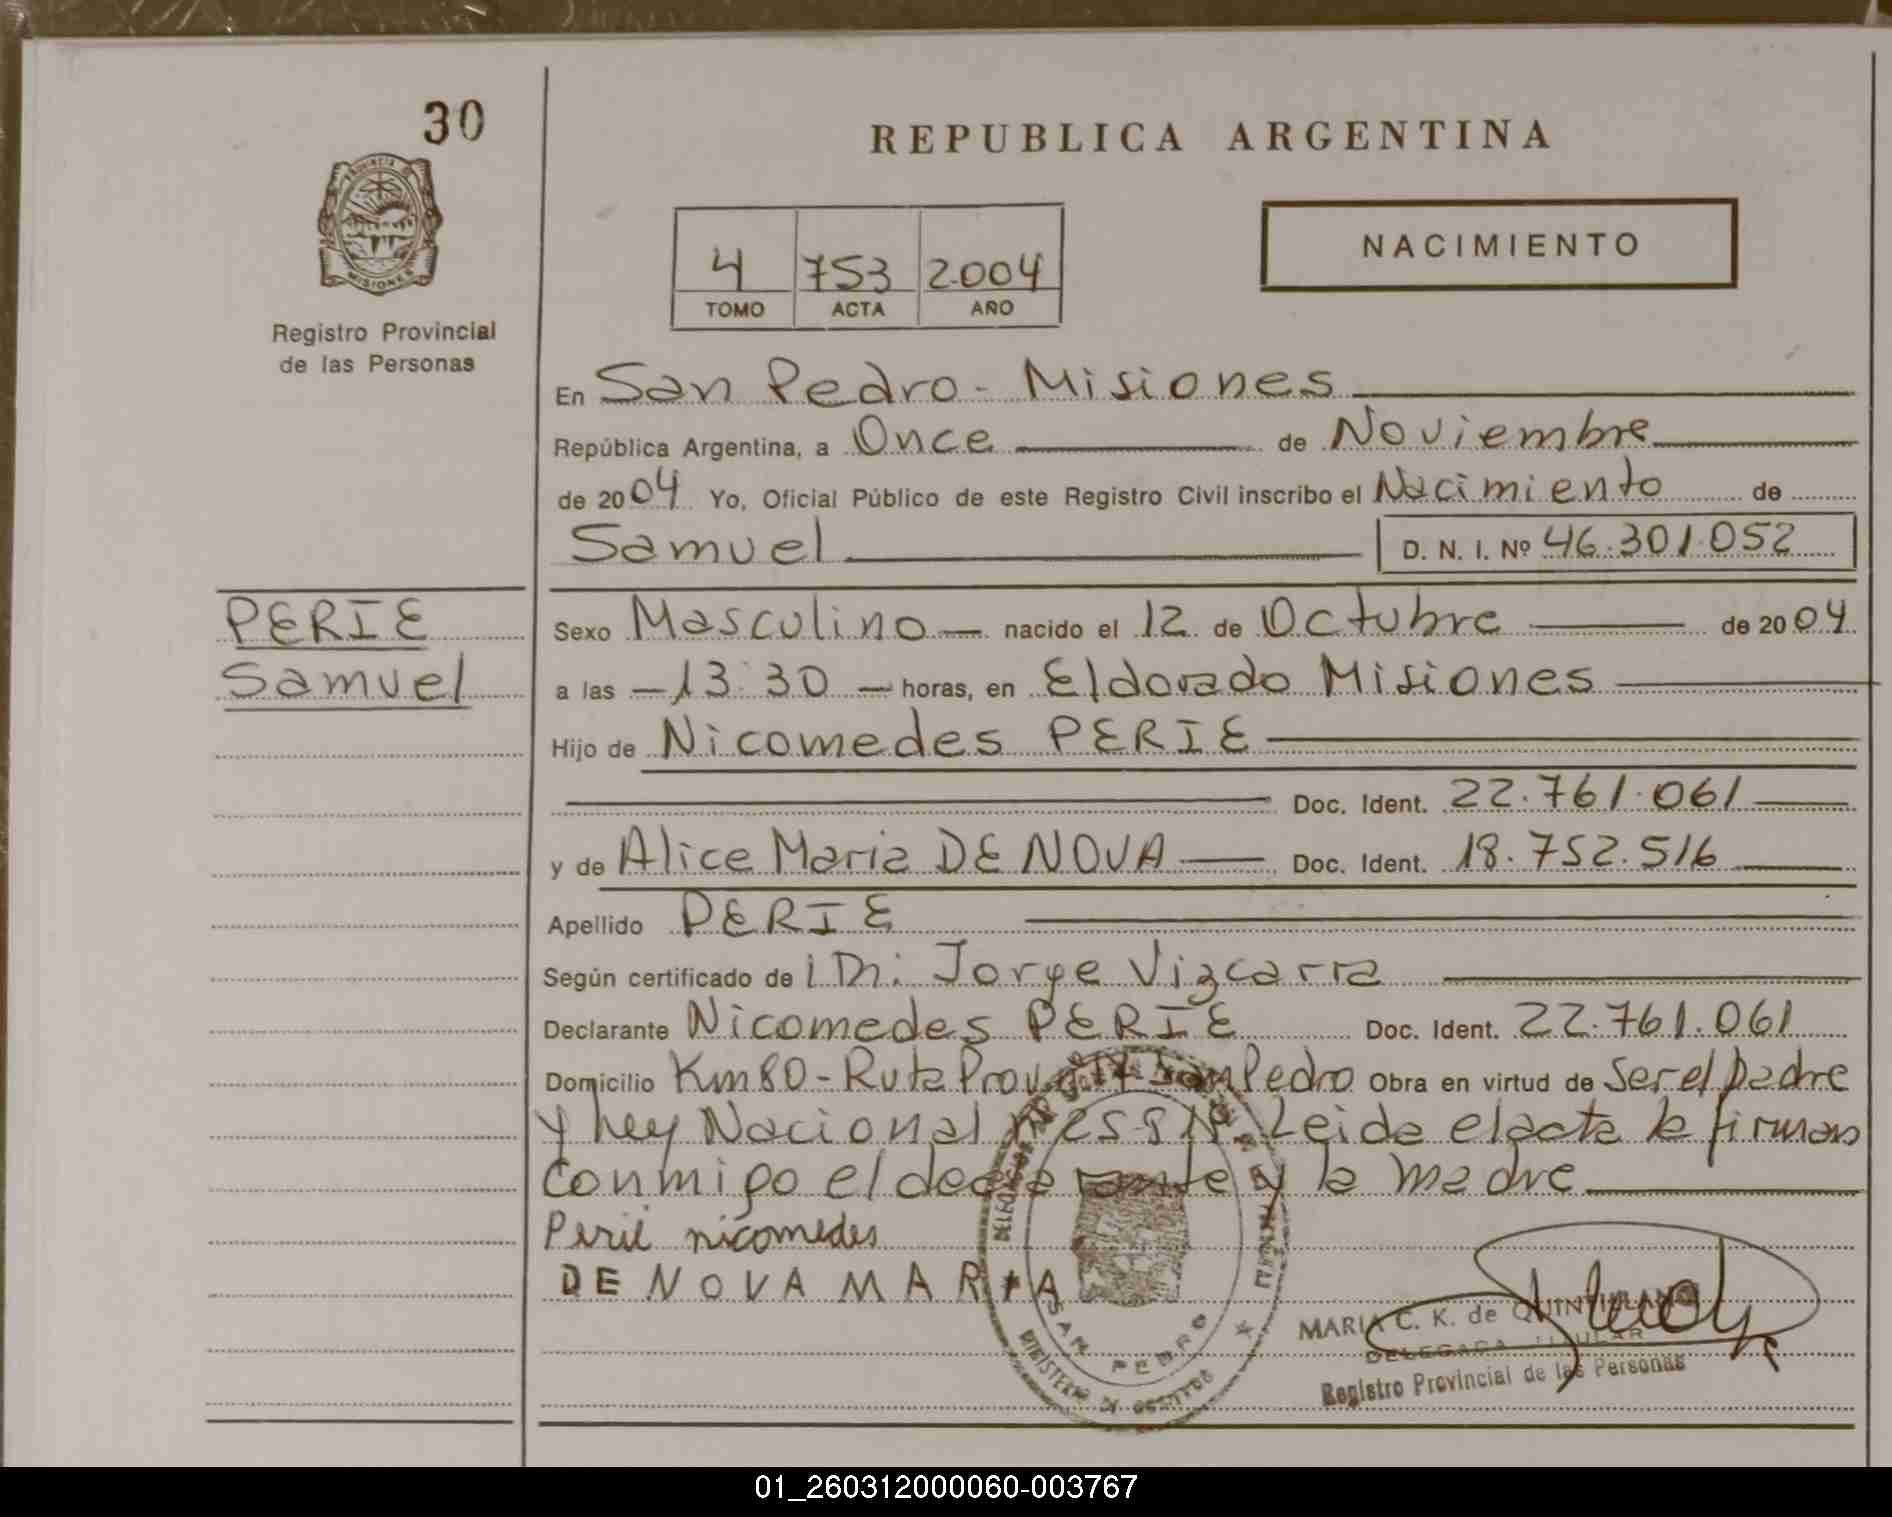 30
PROVINCIA
MISIONES
Registro Provincial
de las Personas
REPUBLICA ARGENTINA
4 753 2004
TOMO ACTA AÑO
NACIMIENTO
En San Pedro - Misiones
República Argentina, a Once de Noviembre
de 2004 Yo, Oficial Público de este Registro Civil inscribo el Nacimiento de
Samuel D. N. I. Nº 46.301.052
PERIE
Samuel
Sexo Masculino nacido el 12 de Octubre de 2004
a las 13:30 horas, en Eldorado Misiones
Hijo de Nicomedes PERIE
Doc. Ident. 22.761.061
y de Alice Maria DE NOVA Doc. Ident. 18.752.516
Apellido PERIE
Según certificado de Jorge Vizcarra
Declarante Nicomedes PERIE Doc. Ident. 22.761.061
Domicilio Km 80 - Ruta Prov. San Pedro Obra en virtud de Ser el padre
y ley Nacional Leida el acta la firman
conmigo el declarante y la madre
Perié nicomedes
DE NOVA MARIA
SAN PEDRO
MARIA C. K. de QUINTILIANO
DELEGADA TITULAR
Registro Provincial de las Personas
01_260312000060-003767